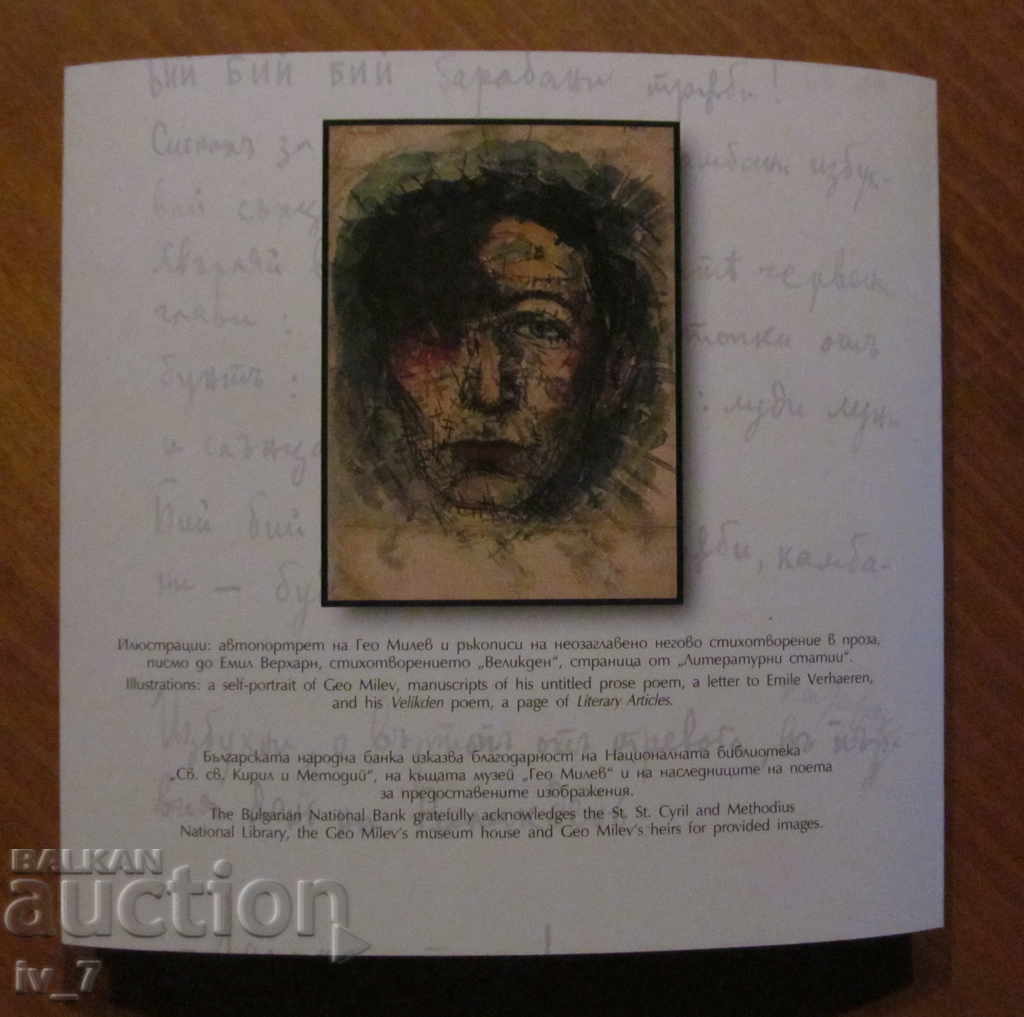 бий бий бий барабани тръби!
Сигналъ за избух-
вай
хвърляй червени
глави:
бунтъ: : луди лун
и слънца
Бий бий камба-
ни — бу
Илюстрации: автопортрет на Гео Милев и ръкописи на неозаглавено негово стихотворение в проза,
писмо до Емил Верхарн, стихотворението „Великден“, страница от „Литературни статии“.
Illustrations: a self-portrait of Geo Milev, manuscripts of his untitled prose poem, a letter to Emile Verhaeren,
and his Velikden poem, a page of Literary Articles.
Българската народна банка изказва благодарност на Националната библиотека
„Св. св, Кирил и Методий“, на къщата музей „Гео Милев“ и на наследниците на поета
за предоставените изображения.
The Bulgarian National Bank gratefully acknowledges the St. St. Cyril and Methodius
National Library, the Geo Milev's museum house and Geo Milev's heirs for provided images.
BALKAN
auction
iv_7